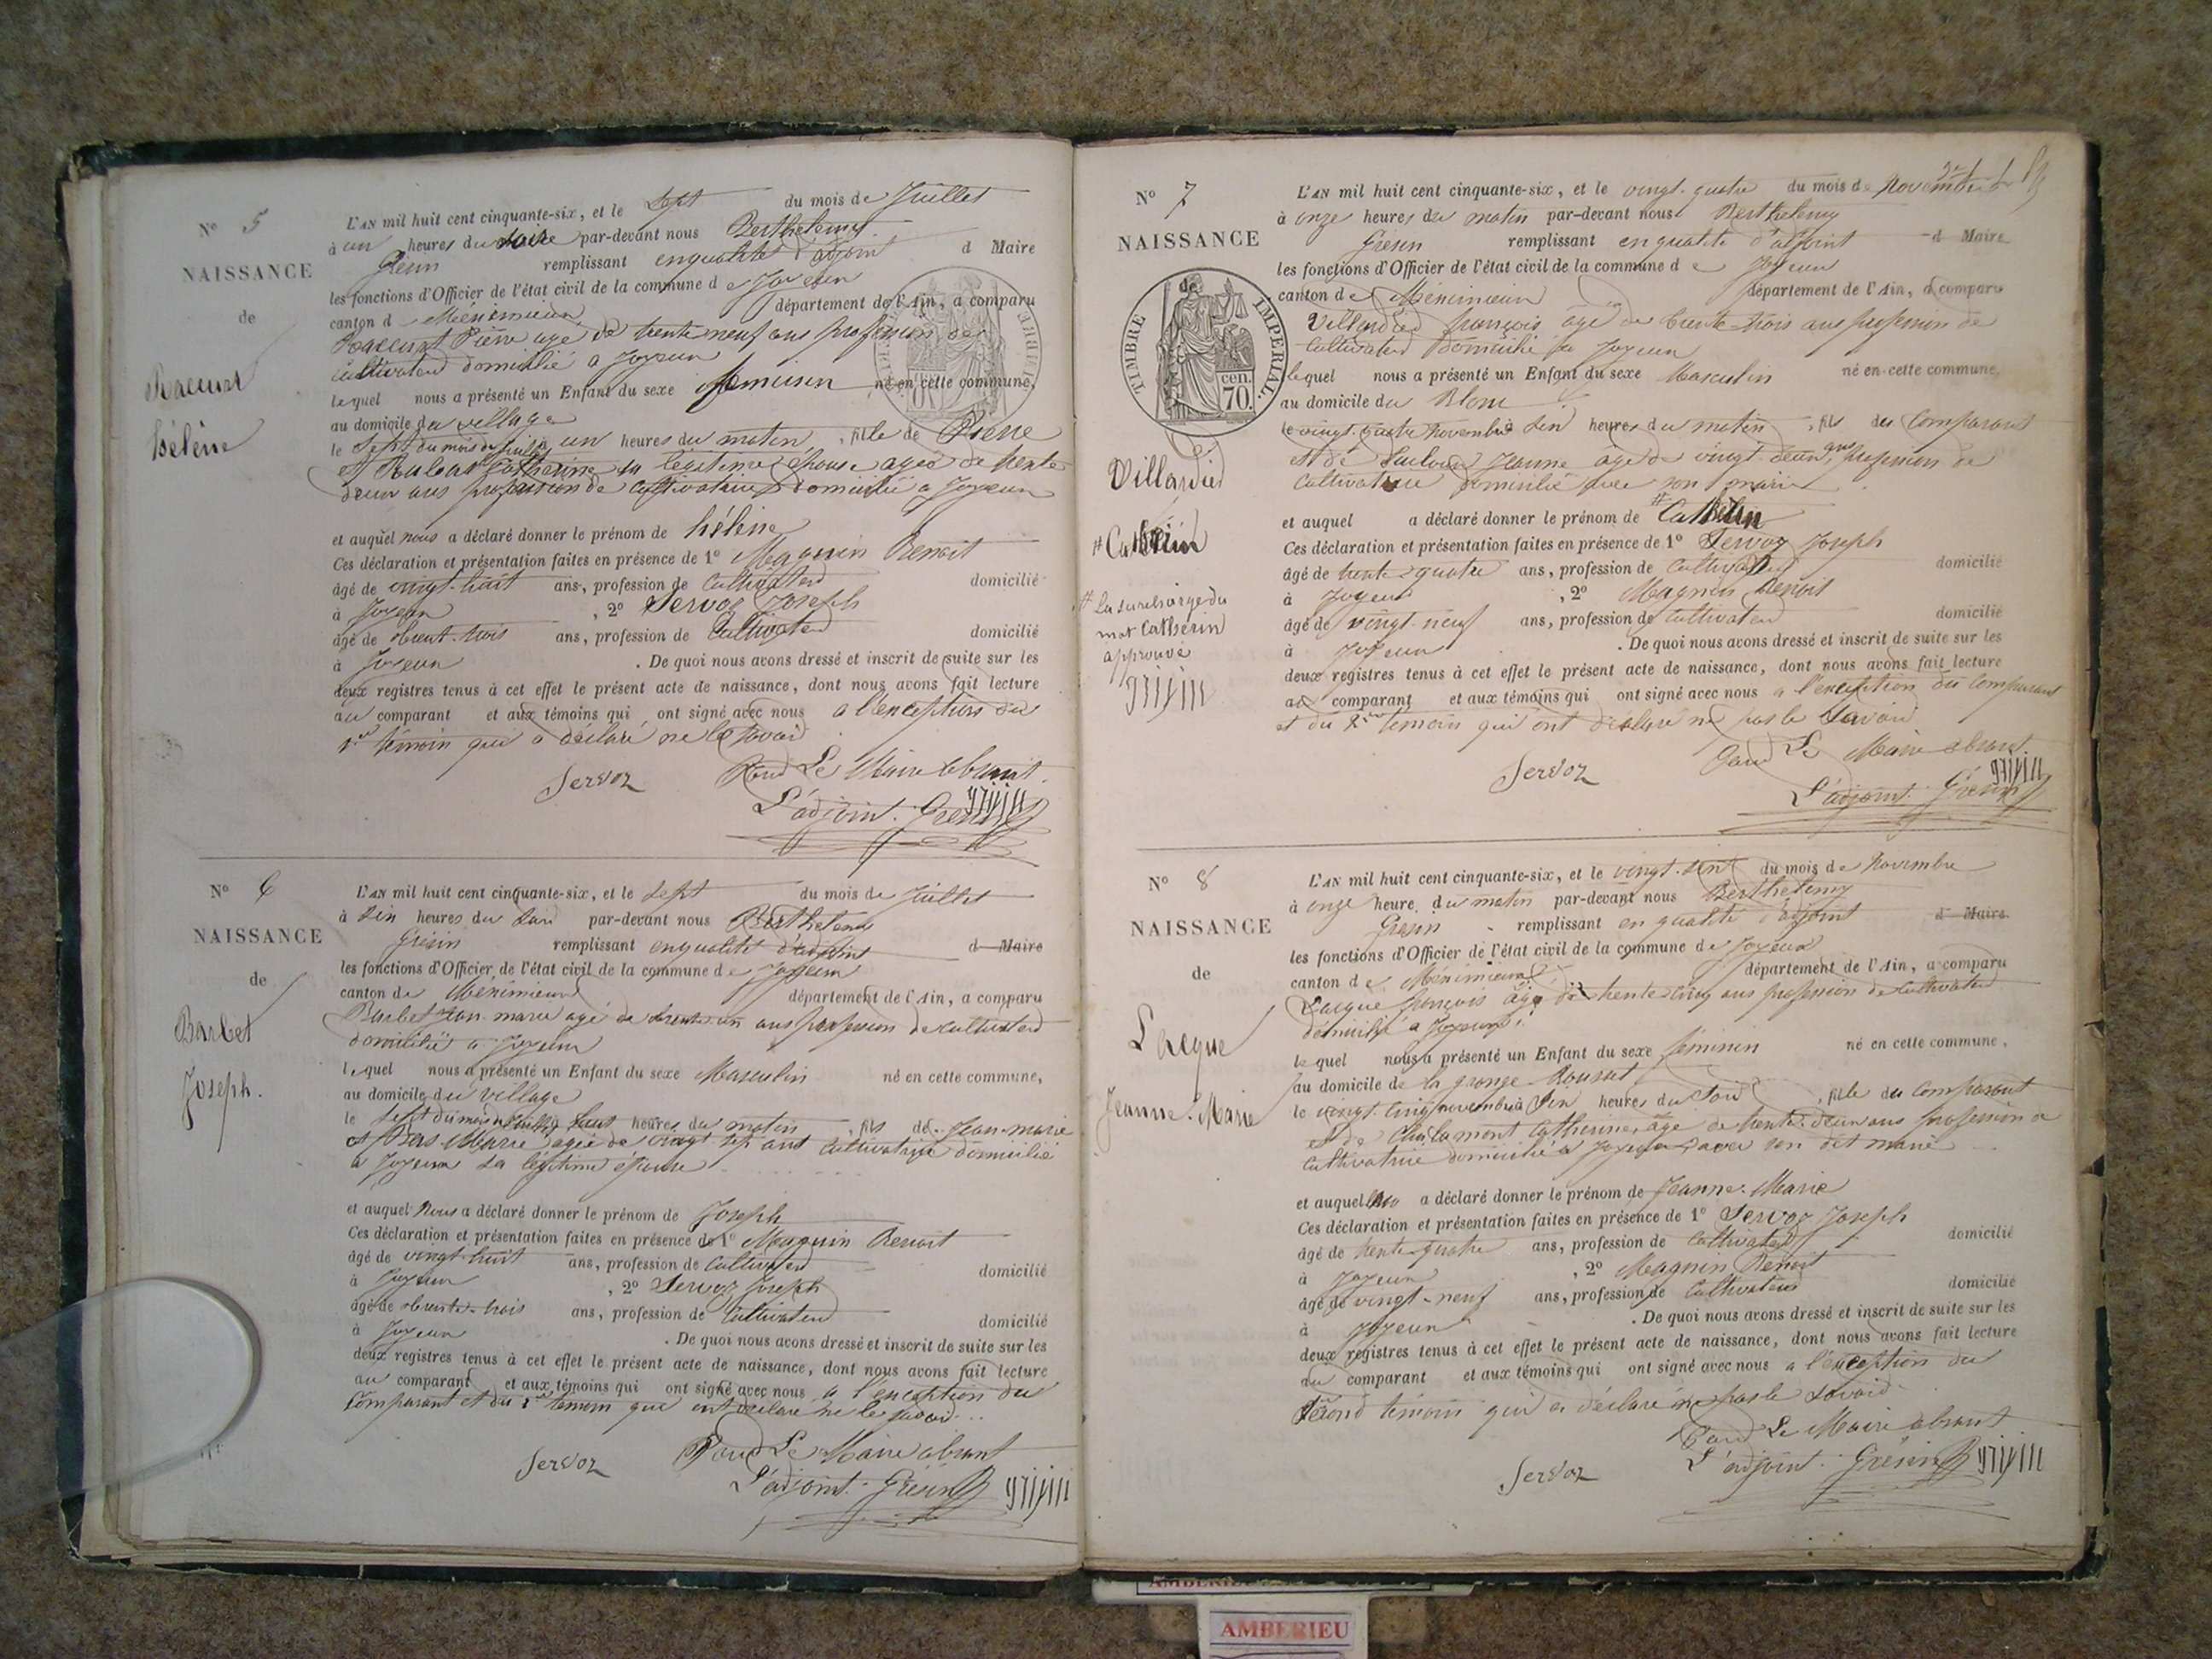 N° 5
NAISSANCE
de
Racurt
hélène
L'AN mil huit cent cinquante-six, et le Sept du mois de Juillet
à un heures du par-devant nous Berthelemy
Grésin remplissant en qualité d'adjoint d Maire
les fonctions d'Officier de l'état civil de la commune d e Joyeux
canton d e Méximieux département de l'Ain, a comparu
Pierre agé de trente neuf ans profession de
cultivateur domicilié a Joyeux
lequel nous a présenté un Enfant du sexe féminin né en cette commune,
au domicile du village
le Sept du mois de juillet à un heures du matin, fille de Pierre
et Catherine sa légitime épouse agée de trente
deux ans profession de cultivatrice domicilié a Joyeux
et auquel nous a déclaré donner le prénom de hélène
Ces déclaration et présentation faites en présence de 1° Magnin Benoit
âgé de vingt-huit ans, profession de Cultivateur domicilié
à Joyeux, 2° Servoz Joseph
âgé de trente-trois ans, profession de Cultivateur domicilié
à Joyeux. De quoi nous avons dressé et inscrit de suite sur les
deux registres tenus à cet effet le présent acte de naissance, dont nous avons fait lecture
au comparant et aux témoins qui ont signé avec nous a l'exception du
1er témoin qui a déclaré ne le savoir
Servoz Pour Le Maire absent
L'adjoint. Grésin
N° 6
NAISSANCE
de
Barbet
Joseph.
L'AN mil huit cent cinquante-six, et le Sept du mois de Juillet
à Six heures du Soir par-devant nous Berthelemy
Grésin remplissant en qualité d'adjoint d Maire
les fonctions d'Officier de l'état civil de la commune d e Joyeux
canton de Méximieux département de l'Ain, a comparu
Barbet Jean-marie agé de trente un ans profession de cultivateur
domicilié a Joyeux
lequel nous a présenté un Enfant du sexe Masculin né en cette commune,
au domicile du village
le Sept du mois de Juillet à heures du matin, fils de Jean-marie
et Bas Marie agée de vingt sept ans cultivatrice domicilié
a Joyeux sa légitime épouse
et auquel Nous a déclaré donner le prénom de Joseph
Ces déclaration et présentation faites en présence de 1° Magnin Benoit
âgé de vingt-huit ans, profession de Cultivateur domicilié
à Joyeux, 2° Servoz Joseph
âgé de trente-trois ans, profession de Cultivateur domicilié
à Joyeux. De quoi nous avons dressé et inscrit de suite sur les
deux registres tenus à cet effet le présent acte de naissance, dont nous avons fait lecture
au comparant et aux témoins qui ont signé avec nous a l'exception du
Comparant et du 1er témoin qui ont déclaré ne le savoir
Servoz Pour Le Maire absent
L'adjoint. Grésin
N° 7
NAISSANCE
TIMBRE IMPERIAL
70. cen.
Villardied
# Catherin
# La surcharge du
mot Catherin
approuvé
L'AN mil huit cent cinquante-six, et le vingt-quatre du mois de Novembre
à onze heures du matin par-devant nous Berthelemy
Grésin remplissant en qualité d'adjoint d Maire
les fonctions d'Officier de l'état civil de la commune d e Joyeux
canton de Méximieux département de l'Ain, a comparu
Villardied françois âgé de trente-trois ans profession de
Cultivateur domicilié a Joyeux
lequel nous a présenté un Enfant du sexe Masculin né en cette commune,
au domicile du Blanc
le vingt-quatre novembre à Six heures du matin, fils du Comparant
et de Jeanne agé de vingt-deux ans profession de
Cultivatrice domicilié avec son mari
et auquel a déclaré donner le prénom de # Catherin
Ces déclaration et présentation faites en présence de 1° Servoz Joseph
âgé de trente-quatre ans, profession de Cultivateur domicilié
à Joyeux, 2° Magnin Benoit
âgé de vingt-neuf ans, profession de Cultivateur domicilié
à Joyeux. De quoi nous avons dressé et inscrit de suite sur les
deux registres tenus à cet effet le présent acte de naissance, dont nous avons fait lecture
au comparant et aux témoins qui ont signé avec nous a l'exception du Comparant
et du 2me témoin qui ont déclaré ne pas le savoir
Servoz Pour Le Maire absent
L'adjoint. Grésin
N° 8
NAISSANCE
de
Lacque
Jeanne-Marie
L'AN mil huit cent cinquante-six, et le vingt-six du mois de Novembre
à onze heure du matin par-devant nous Berthelemy
Grésin remplissant en qualité d'adjoint d Maire
les fonctions d'Officier de l'état civil de la commune de Joyeux
canton de Méximieux département de l'Ain, a comparu
Lacque françois âgé de trente-cinq ans profession de Cultivateur
domicilié a Joyeux
lequel nous a présenté un Enfant du sexe féminin né en cette commune,
au domicile de la grange
le vingt-cinq novembre à Six heures du Soir, fille du Comparant
et de Catherine, âgé de trente-deux ans profession de
cultivatrice domicilié a Joyeux avec son dit marie
et auquel a déclaré donner le prénom de Jeanne-Marie
Ces déclaration et présentation faites en présence de 1° Servoz Joseph
âgé de trente-quatre ans, profession de Cultivateur domicilié
à Joyeux, 2° Magnin Benoit
âgé de vingt-neuf ans, profession de Cultivateur domicilié
à Joyeux. De quoi nous avons dressé et inscrit de suite sur les
deux registres tenus à cet effet le présent acte de naissance, dont nous avons fait lecture
au comparant et aux témoins qui ont signé avec nous a l'exception du
Second témoin qui a déclaré ne pas le savoir
Servoz Pour Le Maire absent
L'adjoint. Grésin
AMBERIEU